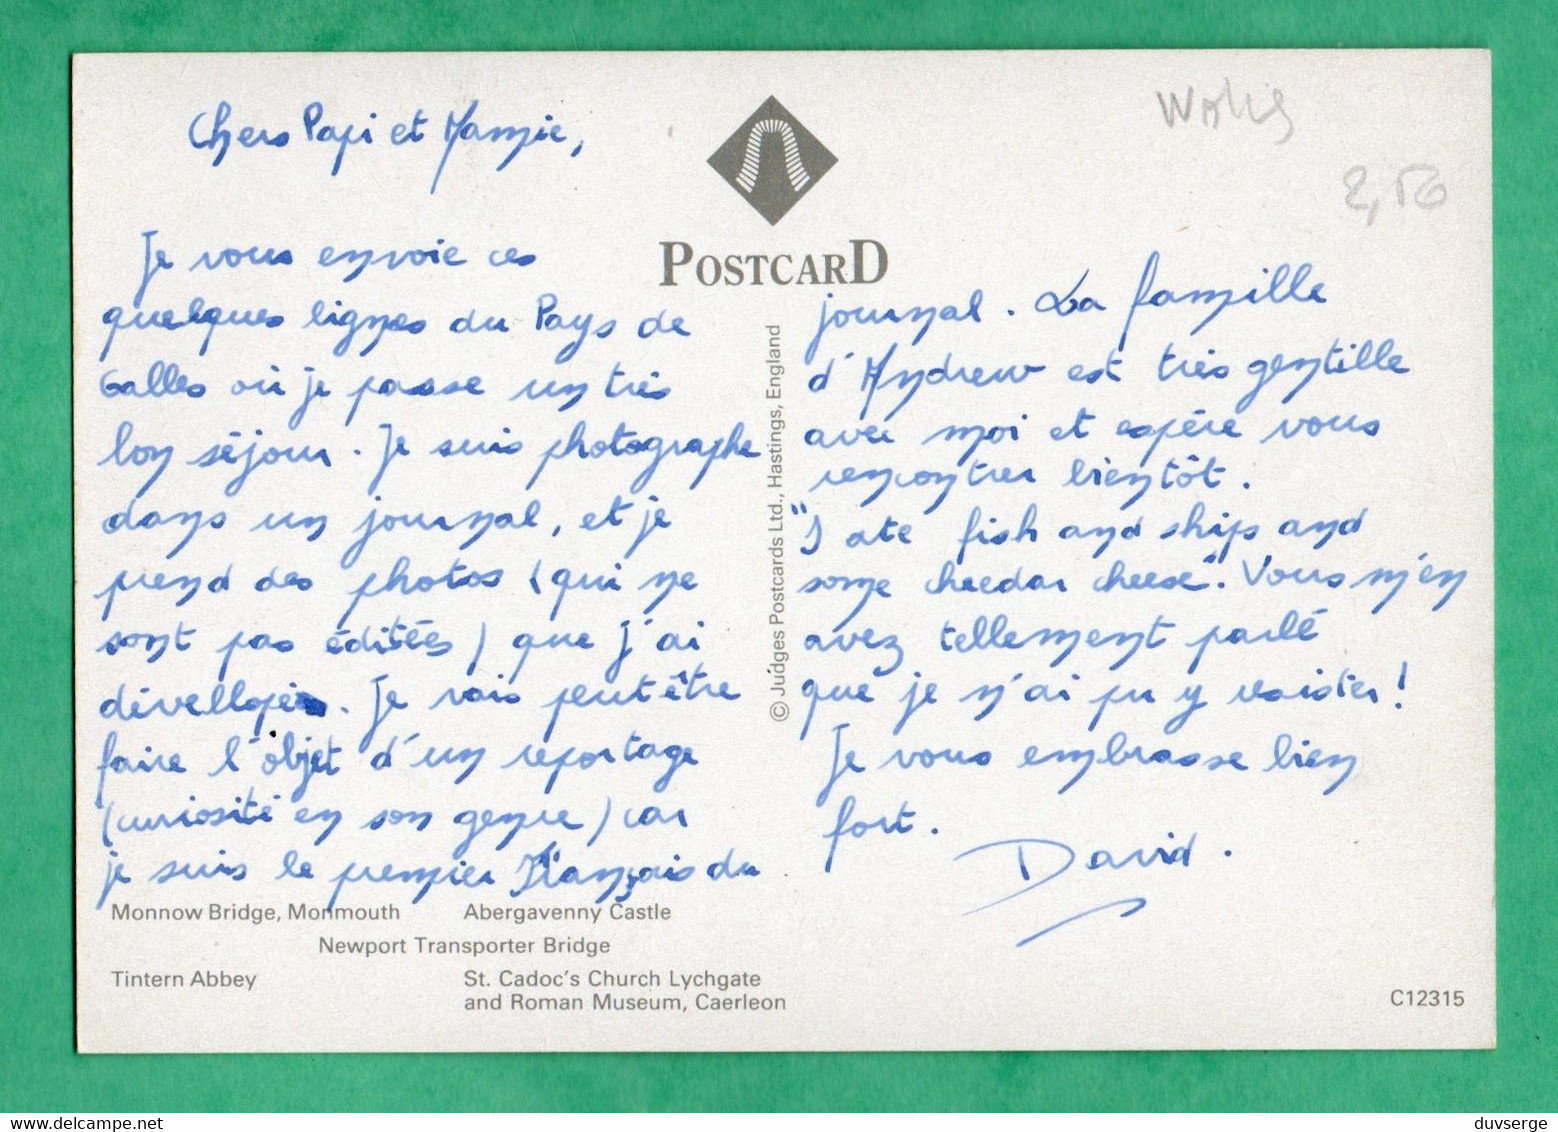 Chers Papi et Mamie,
Je vous envoie ces
quelques lignes du Pays de
Galles où je passe un très
bon séjour. Je suis photographe
dans un journal, et je
prend des photos (qui ne
sont pas éditées) que j'ai
dévellopées. Je vais peut être
faire l'objet d'un reportage
(curiosité en son genre) car
je suis le premier Français du
POSTCARD
© Judges Postcards Ltd., Hastings, England
2,50
journal. La famille
d'Andrew est très gentille
avec moi et espère vous
rencontrer bientôt.
"I ate fish and ship and
some cheedar cheese". Vous m'en
avez tellement parlé
que je n'ai pu y resister!
Je vous embrasse bien
fort.
David.
Monnow Bridge, Monmouth Abergavenny Castle
Newport Transporter Bridge
Tintern Abbey St. Cadoc's Church Lychgate
and Roman Museum, Caerleon
C12315
delcampe.net
duvserge